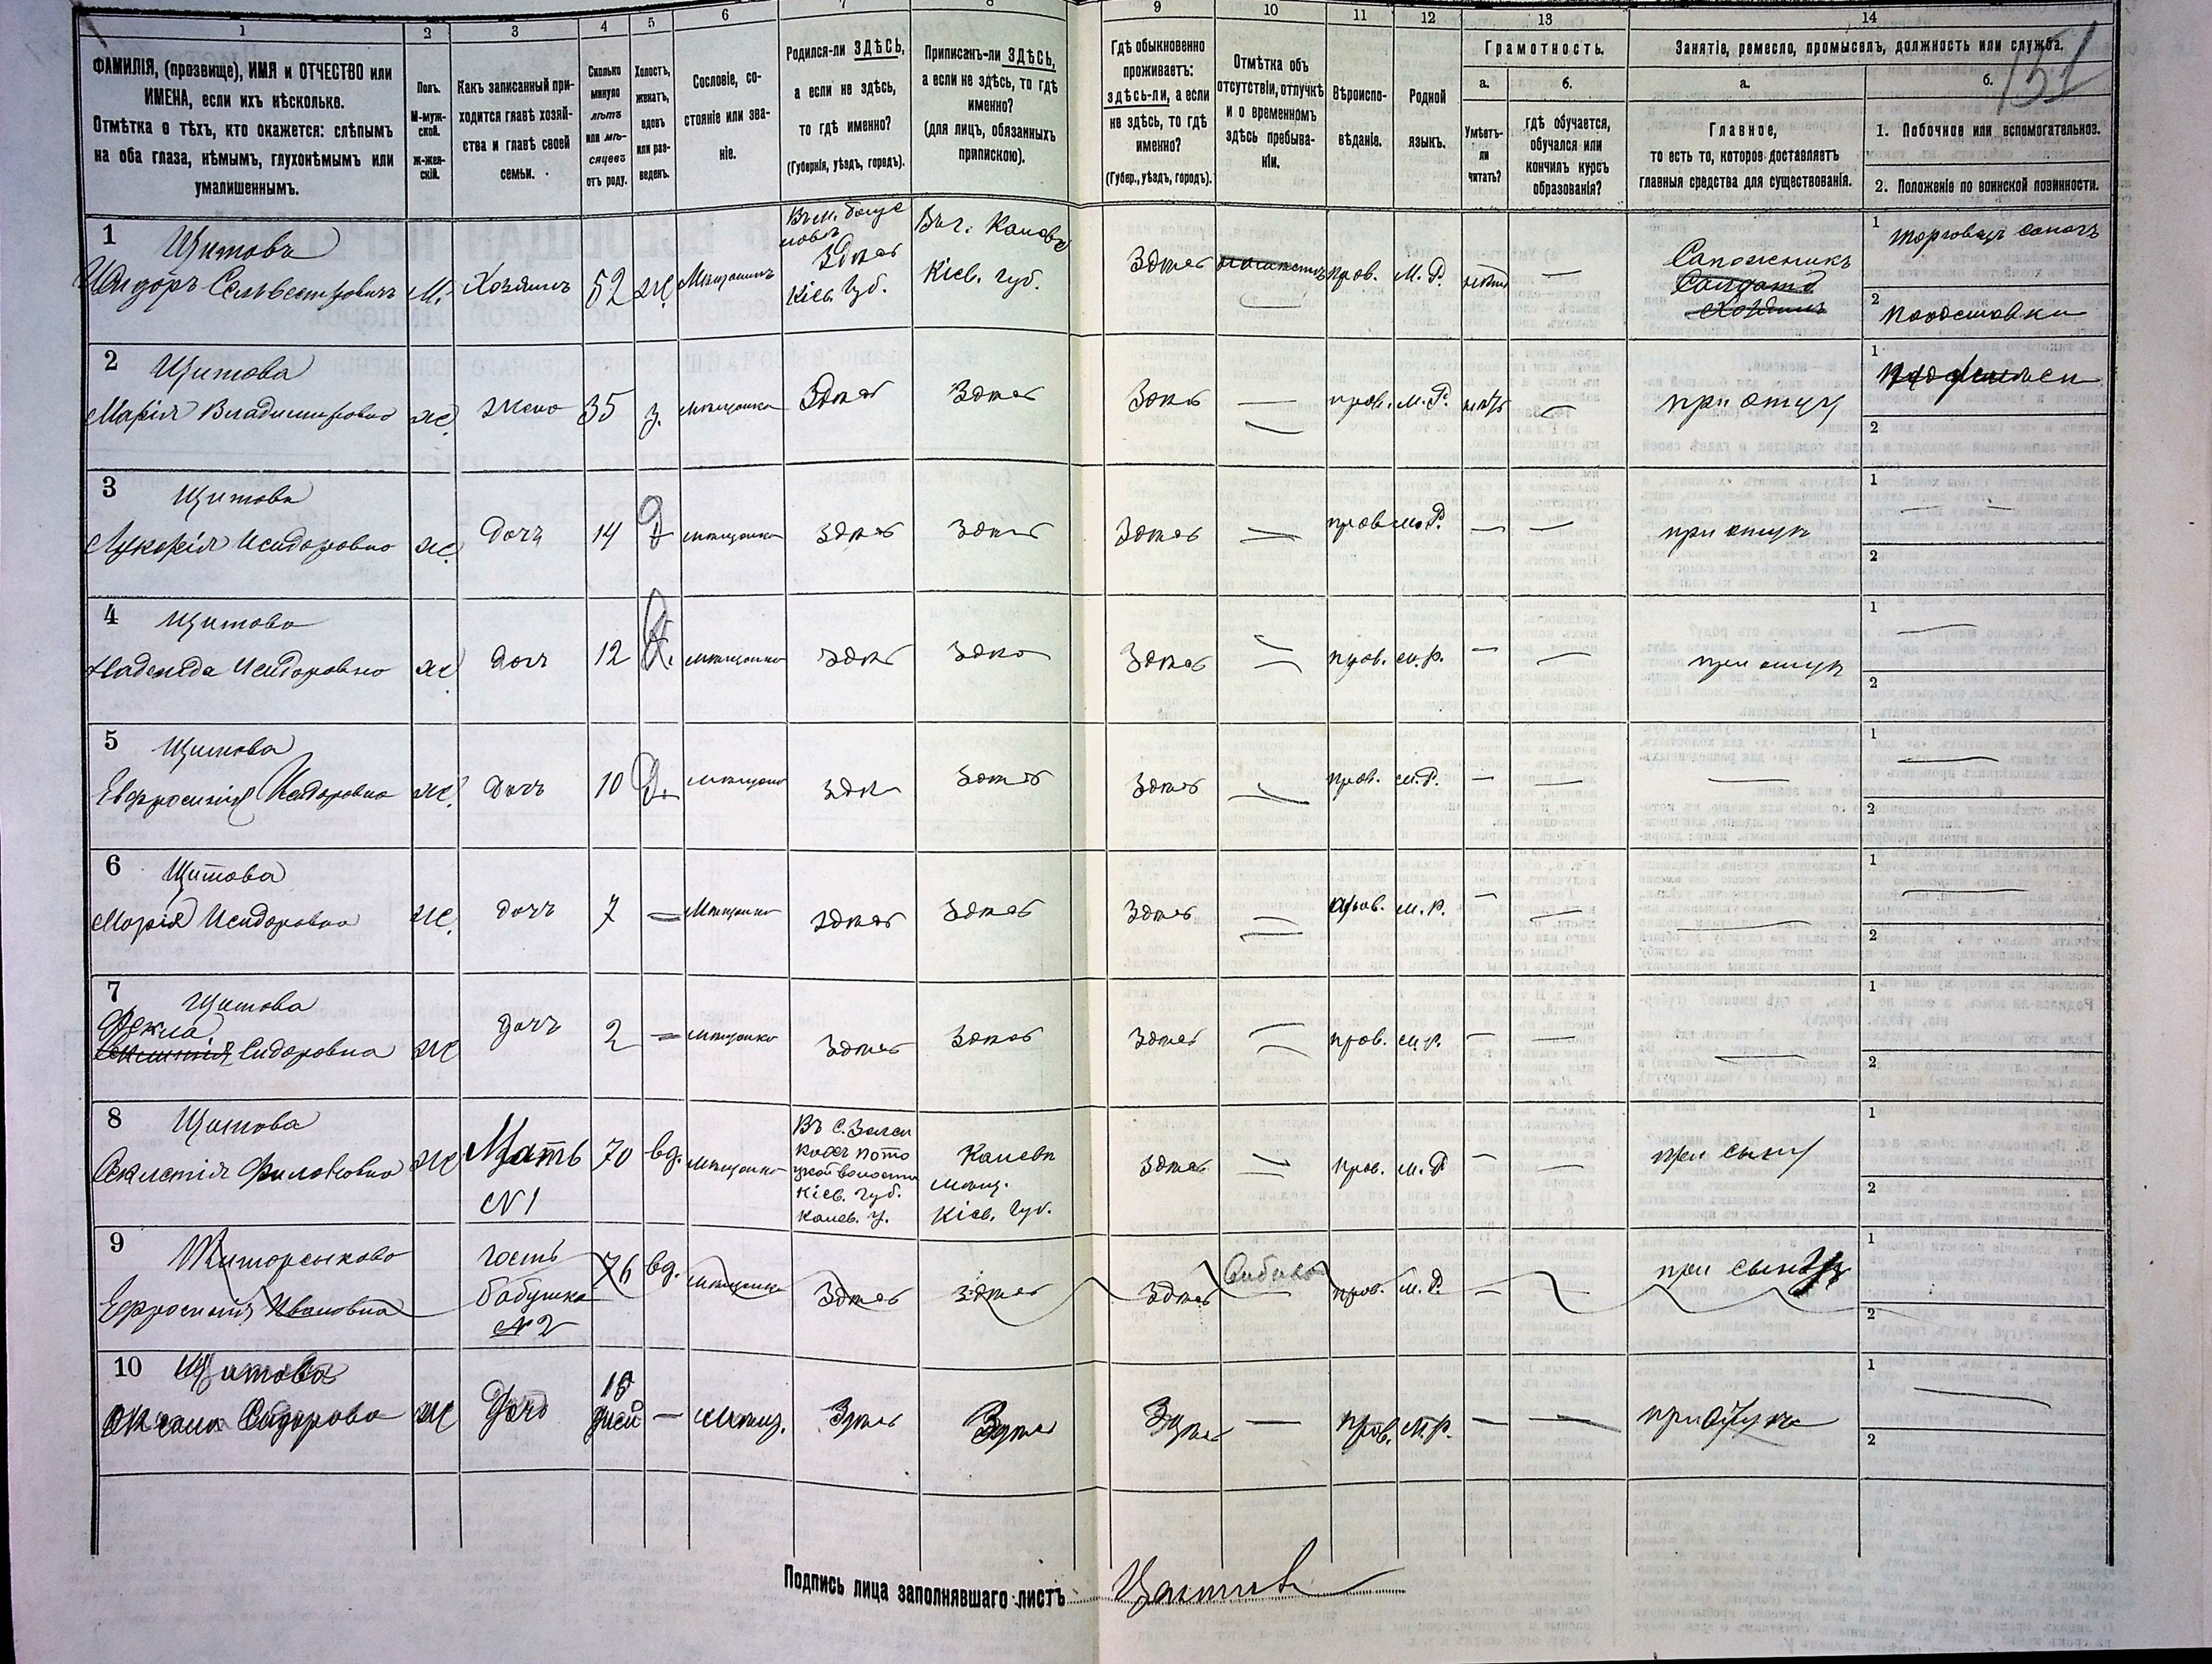 1 2 3 4 5 6 7 8 9 10 11 12 13 14
151
ФАМИЛІЯ, (прозвище), ИМЯ и ОТЧЕСТВО или
ИМЕНА, если ихъ нѣсколько.
Отмѣтка о тѣхъ, кто окажется: слѣпымъ
на оба глаза, нѣмымъ, глухонѣмымъ или
умалишеннымъ.
Полъ.
М-муж-
ской.
ж-жен-
скій.
Какъ записанный при-
ходится главѣ хозяй-
ства и главѣ своей
семьи.
Сколько
минуло
лѣтъ
или мѣ-
сяцевъ
отъ роду.
Холостъ,
женатъ,
вдовъ
или раз-
веденъ.
Сословіе, со-
стояніе или зва-
ніе.
Родился-ли ЗДѢСЬ,
а если не здѣсь,
то гдѣ именно?
(Губернія, уѣздъ, городъ).
Приписанъ-ли ЗДѢСЬ,
а если не здѣсь, то гдѣ
именно?
(для лицъ, обязанныхъ
припискою).
Гдѣ обыкновенно
проживаетъ:
здѣсь-ли, а если
не здѣсь, то гдѣ
именно?
(Губер., уѣздъ, городъ).
Отмѣтка объ
отсутствіи, отлучкѣ
и о временномъ
здѣсь пребыва-
ніи.
Вѣроиспо-
вѣданіе.
Родной
языкъ.
Грамотность.
а.
Умѣетъ-
ли
читать?
б.
гдѣ обучается,
обучался или
кончилъ курсъ
образованія?
Занятіе, ремесло, промыселъ, должность или служба.
а.
Главное,
то есть то, которое доставляетъ
главныя средства для существованія.
б.
1. Побочное или вспомогательное.
2. Положеніе по воинской повинности.
1 Щитовъ
Исидоръ Сельвестровичъ М. Хозяинъ 52 Ж Мѣщанинъ
Здѣсь
Кіев. Губ.
Въ г. Каневѣ
Кіев. Губ.
Здѣсь пров. М. Р.
Сапожникъ
1 торговецъ сапогъ
2
2 Щитова
Марія Владимировна ж Жена 35 з. мѣщанка Здѣсь Здѣсь Здѣсь — пров. М. Р. при отцу
1
2
3 Щитова
Лукерія Исидоровна ж Дочь 14 Д мѣщанка Здѣсь Здѣсь Здѣсь — пров м. Р. — — при отцу
1
2
4 Щитова
Надежда Исидоровна ж Дочь 12 Д. мѣщанка Здѣсь Здѣсь Здѣсь — пров. м. р. — — при отцу
1 —
2
5 Щитова
Евфросинія Исидоровна ж. Дочь 10 Д. мѣщанка Здѣсь Здѣсь Здѣсь — пров. М. Р. — — —
1 —
2
6 Щитова
Марія Исидоровна ж. дочь 7 — Мѣщанка Здѣсь Здѣсь Здѣсь — пров. М. р. — — —
1 —
2
7 Щитова
Фекла
Сидоровна ж Дочь 2 — мѣщанка Здѣсь Здѣсь Здѣсь — пров. М. р. — — —
1
2
8 Щитова
ж Мать 70 вд. мѣщанка
N 1
Въ С.
Пото
цкой волости
Кіев. Губ.
Канев. у.
Каневъ
мѣщ.
Кіев. Губ.
Здѣсь — пров. М. Р — — при сыну
1
2
9
Ефросинія Ивановна
гость
бабушка
N 2
76 вд. мѣщанка Здѣсь Здѣсь Здѣсь пров. М. Р. — —
1
2
10 Щитова
Сидорова ж Дочь
18
дней — мѣщ. Здѣсь Здѣсь Здѣсь — пров. М. р. — —
1 —
2
Подпись лица заполнявшаго листъ Щитовъ